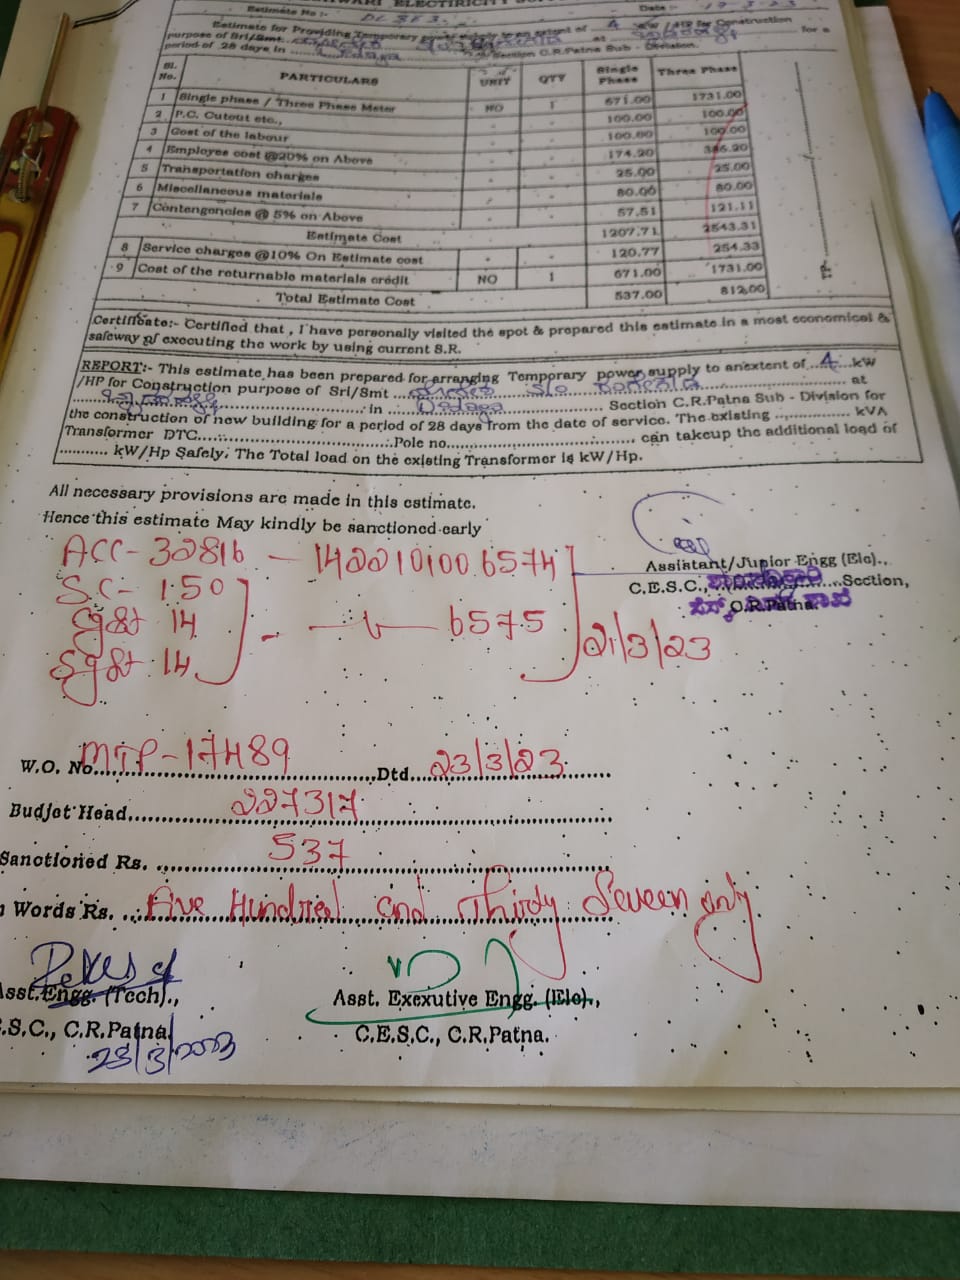 Estimate No :-
Date :-
Estimate for Providing Temporary power supply to an extent of 4 kW / HP for Construction
purpose of Sri/Smt. at for a
period of 28 days in Section C.R.Patna Sub - Division.
Sl. No. PARTICULARS UNIT QTY Single Phase Three Phase
1 Single phase / Three Phase Meter NO 1 671.00 1731.00
2 P.C. Cutout etc., - - 100.00 100.00
3 Cost of the labour - - 100.00 100.00
4 Employee cost @20% on Above - - 174.20 386.20
5 Transportation charges - - 25.00 25.00
6 Miscellaneous materials - - 80.00 80.00
7 Contengencies @ 5% on Above - - 57.51 121.11
Estimate Cost 1207.71 2543.31
8 Service charges @10% On Estimate cost - - 120.77 254.33
9 Cost of the returnable materials credit NO 1 671.00 1731.00
Total Estimate Cost 537.00 812.00
Certificate:- Certified that , I have personally visited the spot & prepared this estimate in a most economical &
safeway of executing the work by using current S.R.
REPORT:- This estimate has been prepared for arranging Temporary power supply to an extent of 4 kW
/HP for Construction purpose of Sri/Smt ... at
... in ... Section C.R.Patna Sub - Division for
the construction of new building for a period of 28 days from the date of service. The existing ............. kVA
Transformer DTC..............Pole no.............. can takeup the additional load of
........... kW/Hp Safely. The Total load on the existing Transformer is kW/Hp.
All necessary provisions are made in this estimate.
Hence this estimate May kindly be sanctioned early
ACC- 32816 - 142210100 6574
Assistant/Junior Engg (Ele).,
S.C- 150
C.E.S.C., Section,
O.R.Patna
Cgst 14
6575
21/3/23
Sgst 14
W.O. No. MTP-17489 Dtd. 23/3/23
Budjet Head. 227317
Sanctioned Rs. 537
n Words Rs. Five Hundred and Thirdy Seveen only
Asst.Engg. (Tech).,
Asst. Exexutive Engg. (Ele).,
.S.C., C.R.Patna
C.E.S.C., C.R.Patna.
23/3/2023